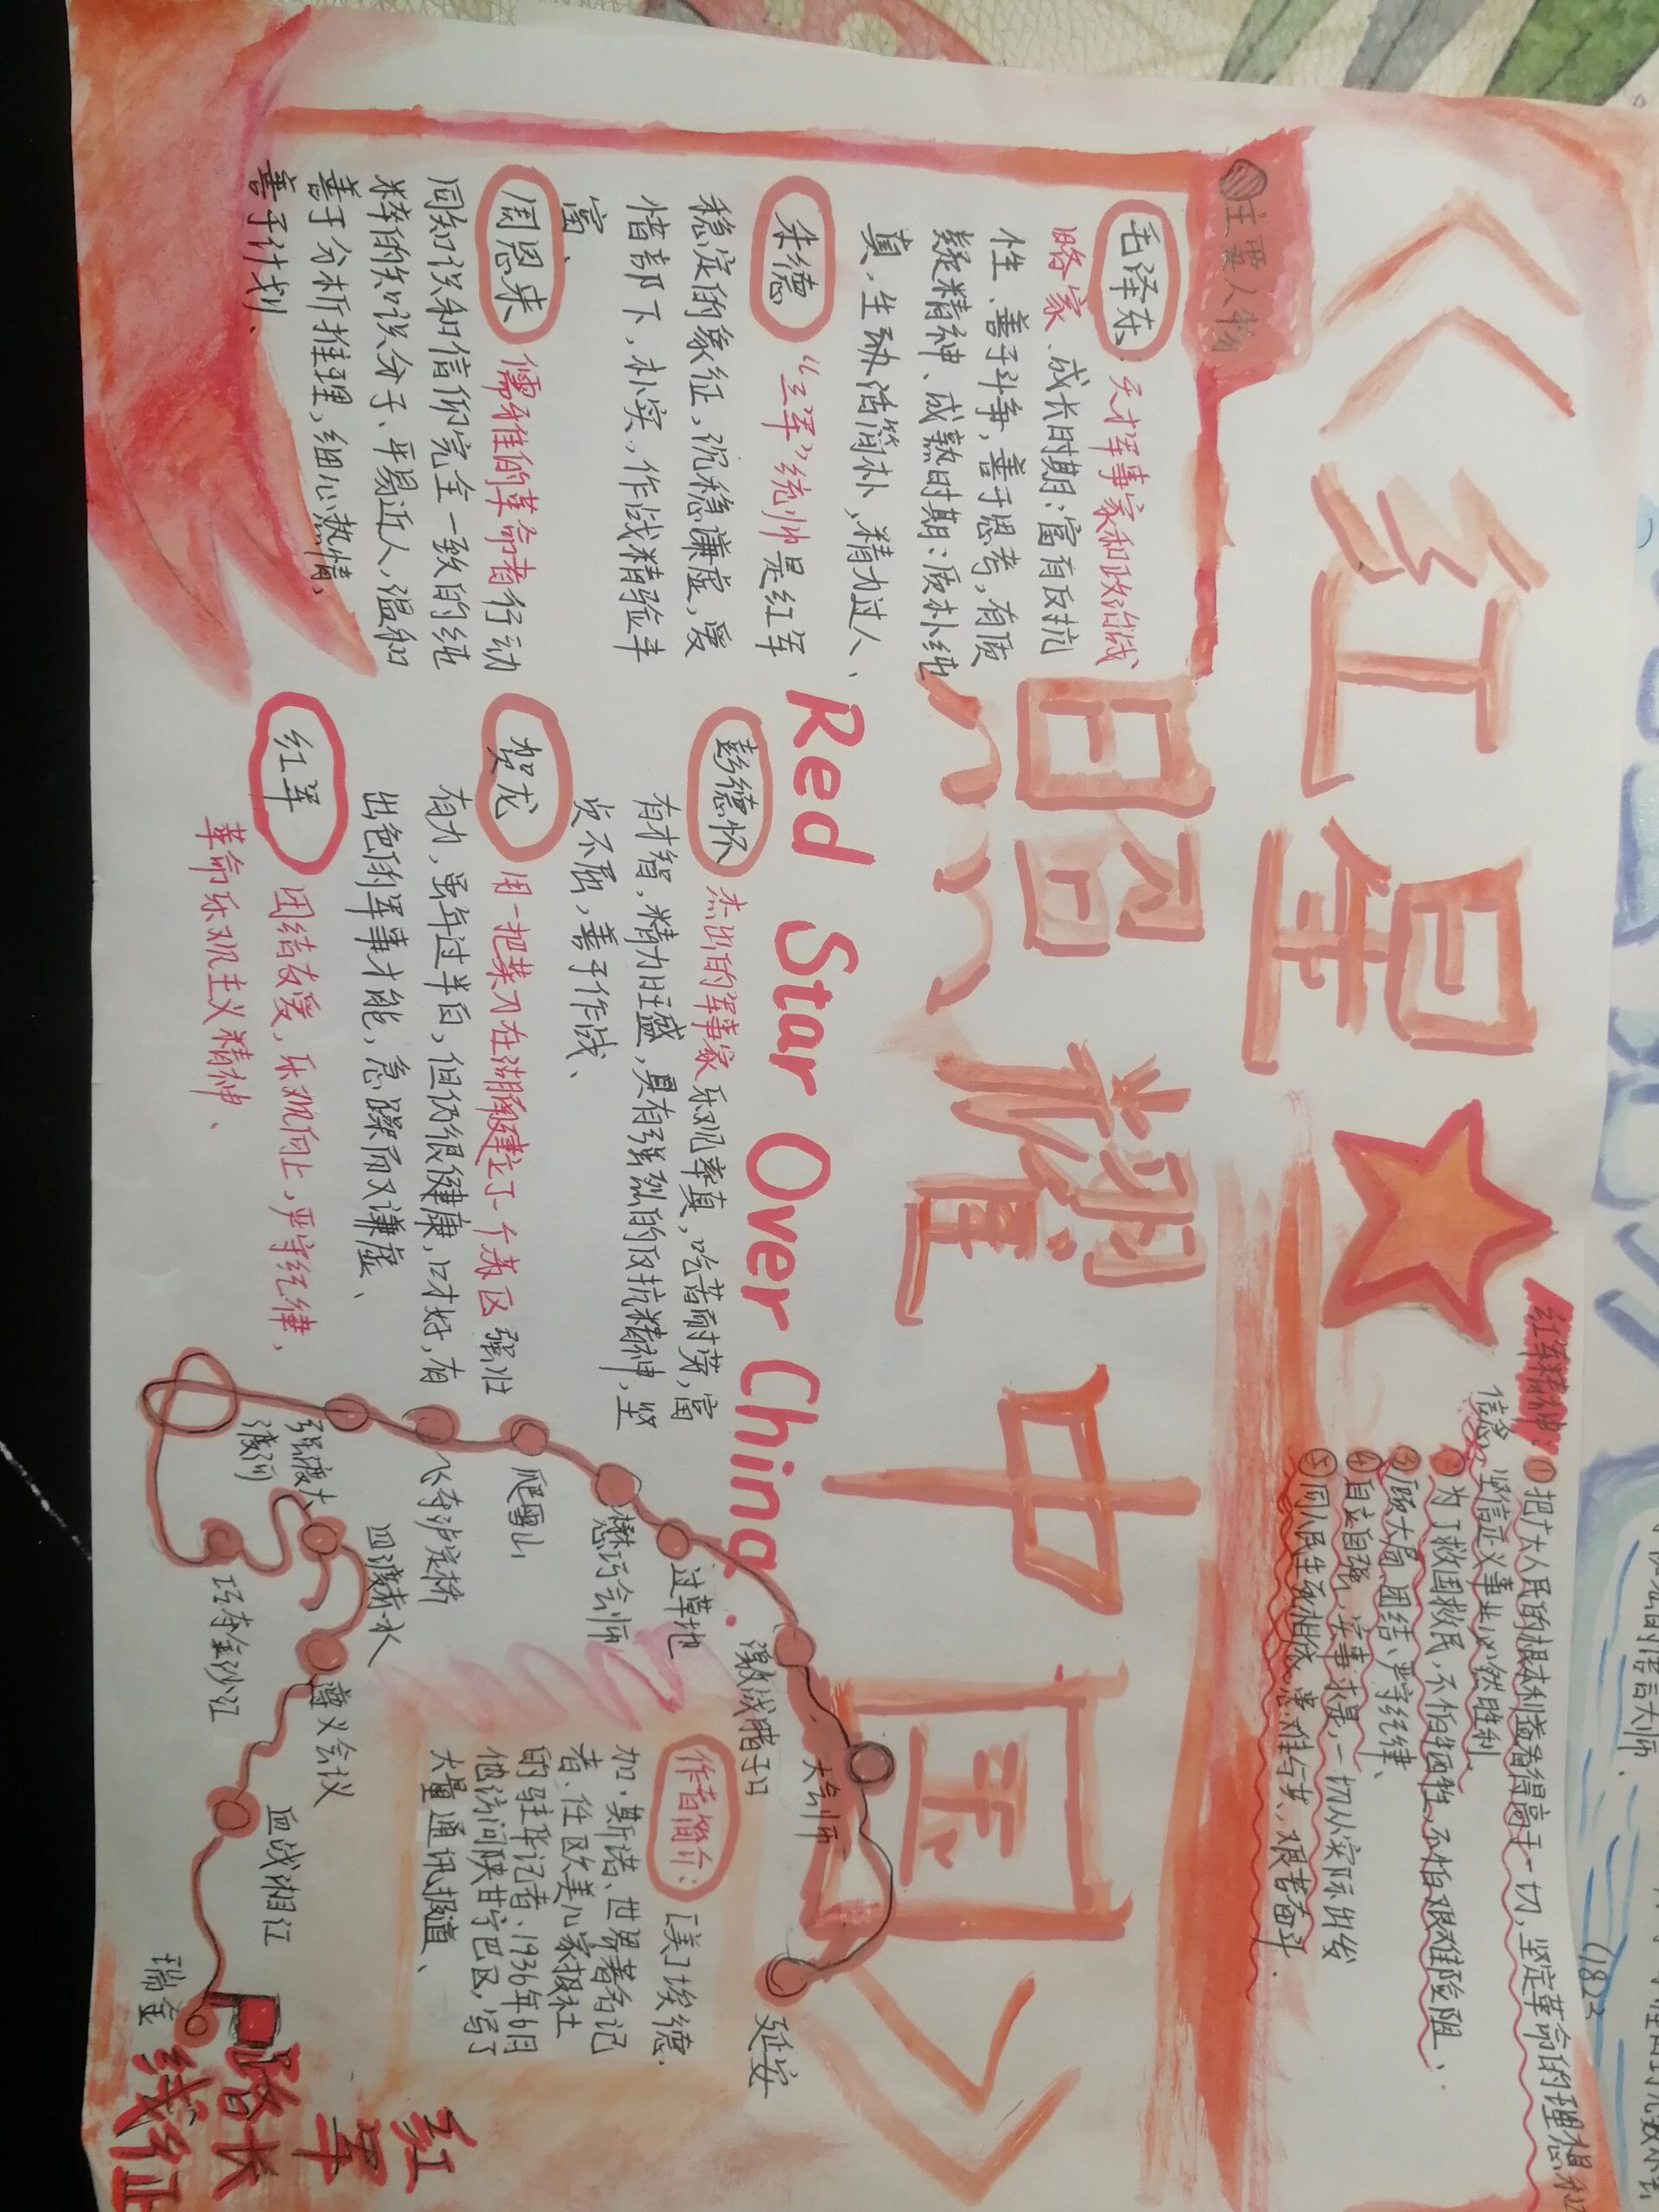 《红星照耀中国》
Red Star Over China.
红军精神:①把广大人民的根本利益看得高于一切,坚定革命的理想和
信念,坚信正义事业必然胜利
②为了救国救民,不怕牺牲,不怕艰难险阻、
③顾大局、团结、严守纪律、
④自立自强、实事求是,一切从实际出发
⑤同人民生死相依、患难与共、艰苦奋斗.
主要人物
毛泽东:天才军事家和政治战
略家、成长时期:富有反抗
性、善于斗争,善于思考,有质
疑精神、成熟时期:质朴纯
真,生动活简朴,精力过人、
朱德 “三军”统帅是红军
稳定的象征,沉稳谦虚,爱
惜部下,朴实,作战精验丰
富、
周恩来 儒雅的革命者行动
同知识和信仰完全一致的纯
粹的知识分子、平易近人,温和
善于分析推理,细心热情,
善于计划、
彭德怀 杰出的军事家乐观率真,吃苦耐劳,富
有才智,精力旺盛,具有强烈的反抗精神,坚
贞不屈,善于作战、
贺龙 用一把菜刀在湖南建立了一个苏区强壮
有力,虽年过半百,但仍很健康,口才好,有
出色的军事才能,急躁而又谦虚、
红军 团结友爱,乐观向上,严守纪律,
革命乐观主义精神、
作者简介:[美]埃德.
加·斯诺、世界著名记
者、任欧美几家报社
的驻华记者、1936年6月
他访问陕甘宁边区,写了
大量通讯报道、
延安
大会师
激战腊子口
过草地
懋功会师
爬雪山
飞夺泸定桥
强渡大
渡河
巧夺金沙江
四渡赤水
遵义会议
血战湘江
瑞金
红军
长征
路线